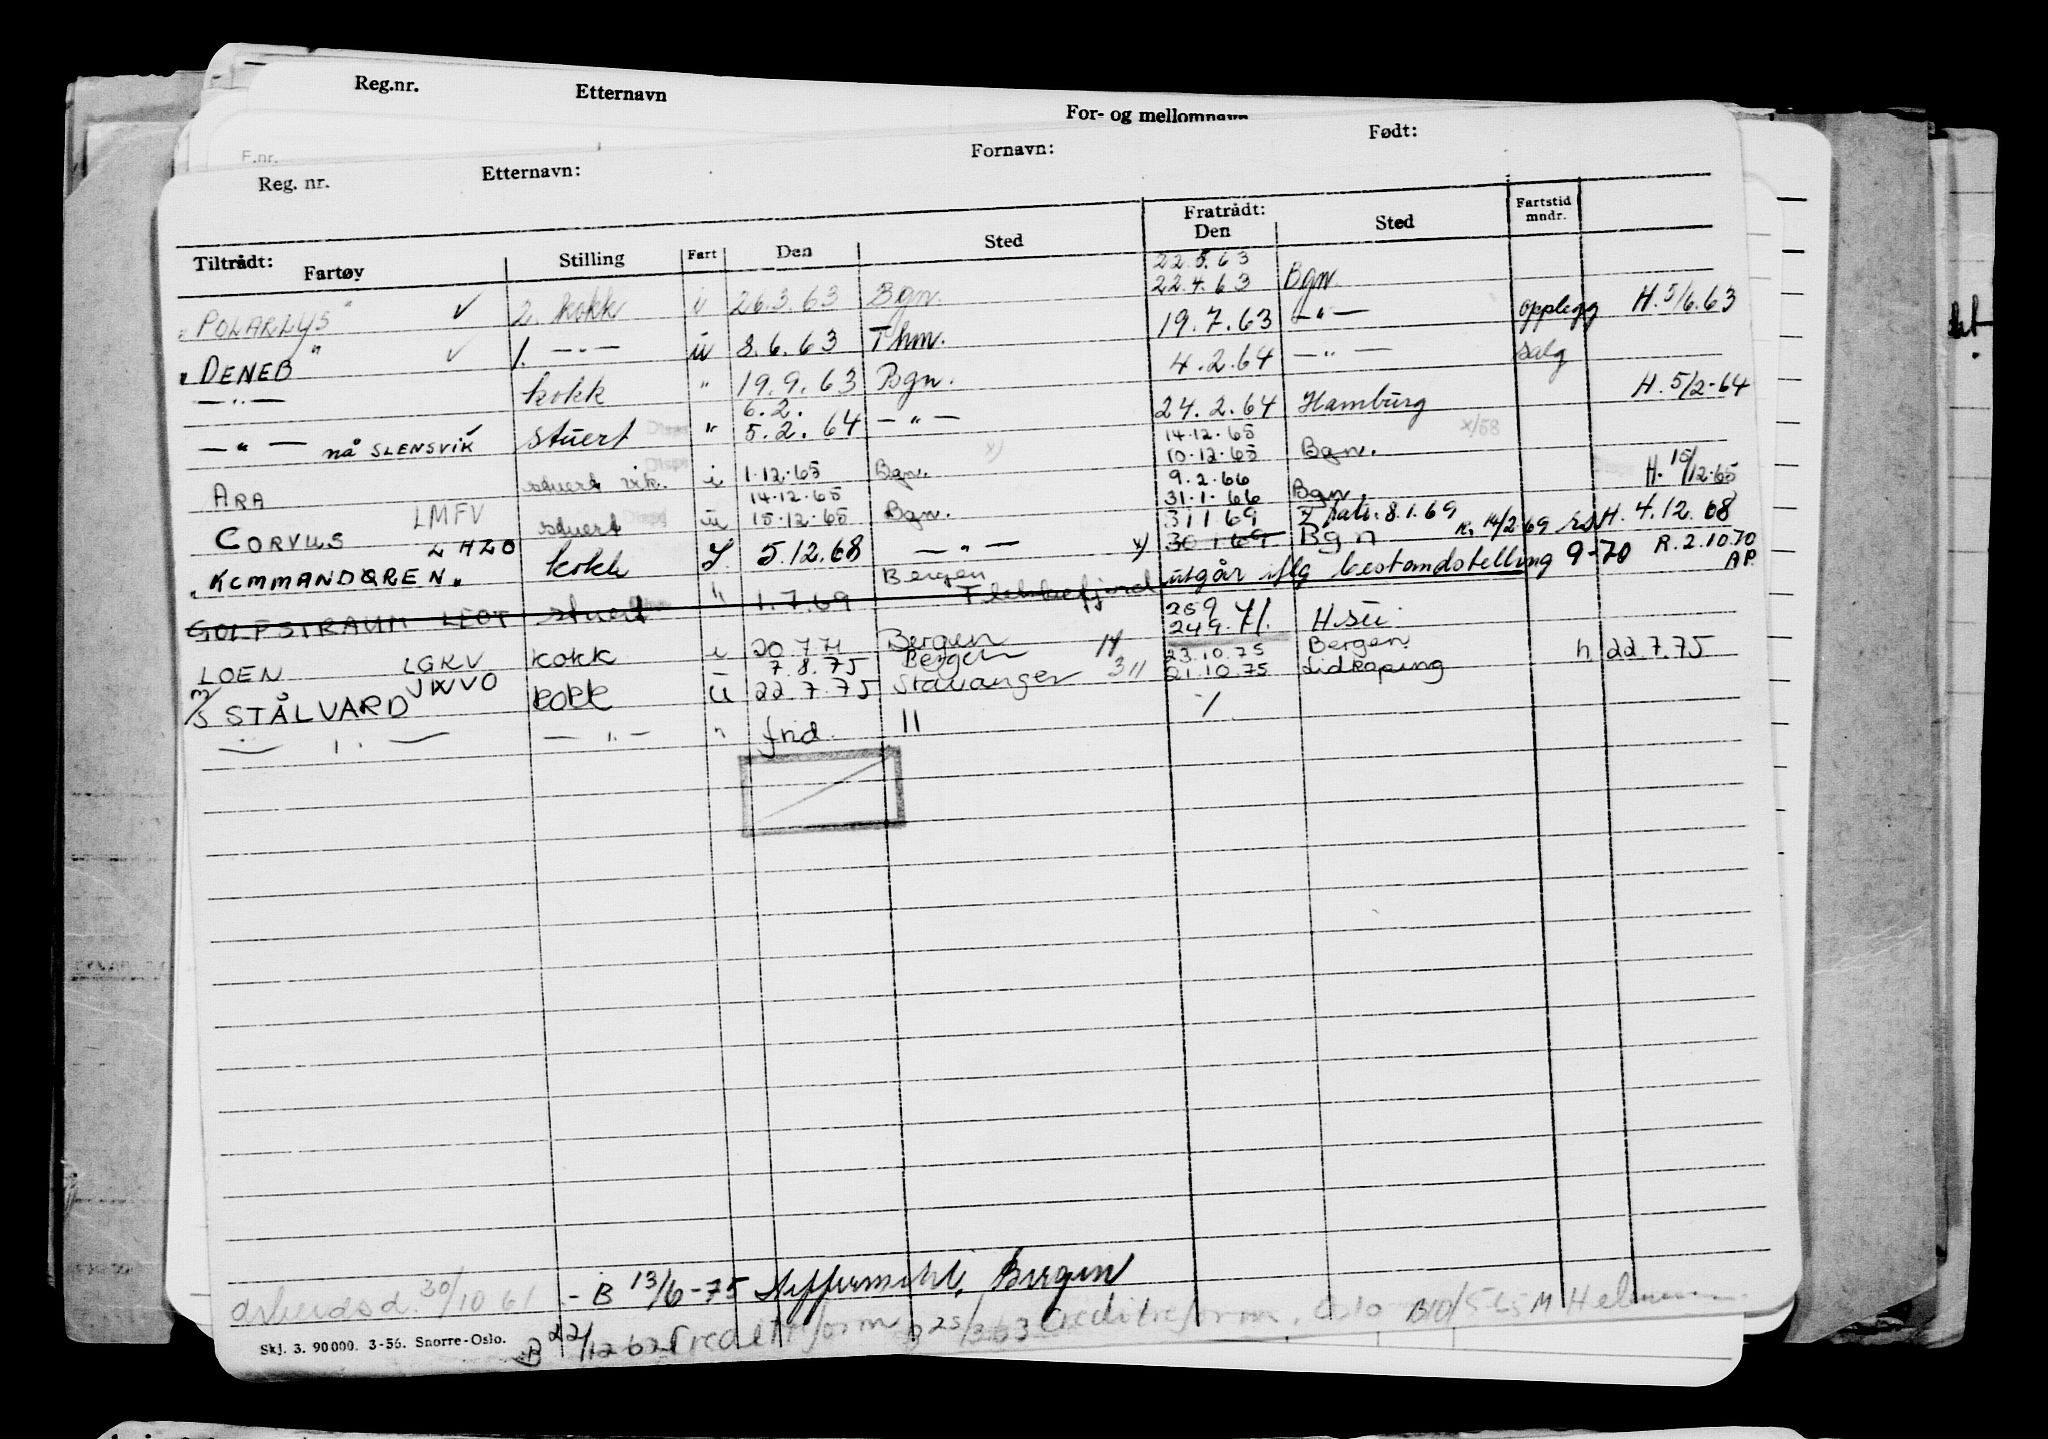 Reg.nr. Etternavn For- og mellomnavn
F.nr.
Reg. nr. Etternavn: Fornavn: Født:
Tiltrådt: Fratrådt:
Fartøy Stilling Fart Den Sted Den Sted Fartstid mndr.
22.5.63
"POLARLYS" ✓ 2. kokk i 26.3.63 Bgn. 22.4.63 Bgn.
"DENEB" ✓ 1. —"— ü 8.6.63 Thm. 19.7.63 —"— opplegg H. 5/6.63
—"— kokk " 19.9.63 Bgn. 4.2.64 —"— salg
6.2.
—"— nå SLENSVIK ✓ stuert " 5.2.64 —"— 24.2.64 Hamburg H. 5/2-64
14.12.65
ARA stuert vik. i 1.12.65 Bgn. 10.12.65 Bgn. x/58
14.12.65 9.2.66
CORVUS LMFV stuert ü 15.12.65 Bgn. 31.1.66 Bgn. H. 15/12.65
31 1 69 8.1.69
"KOMMANDØREN" LHLO kokk I 5.12.68 —"— x) 30 1 69 Bgn R. 14/2.69 H. 4.12.68
Bergen
GOLFSTRAUM LEOT stuert " 1.7.69 Flekkefjord utgår iflg bestandstelling 9-70 R. 2.10.70 AP.
25 9
LOEN LGRV kokk i 20.7.71 Bergen 24 9.71. H.sü.
7.8.75 Bergen 23.10.75 Bergen
M/S STÅLVARD JWVO kokk ü 22.7.75 Stavanger 311 21.10.75 Lidköping h 22.7.75
—"— —"— " frid. 11 /
arbeidsd. 30/10 61 - B 13/6-75 Bergen
Skj. 3. 90000. 3-56. Snorre-Oslo. B 22/12 62 Creditreform B 25/3 63 Creditreform, Oslo